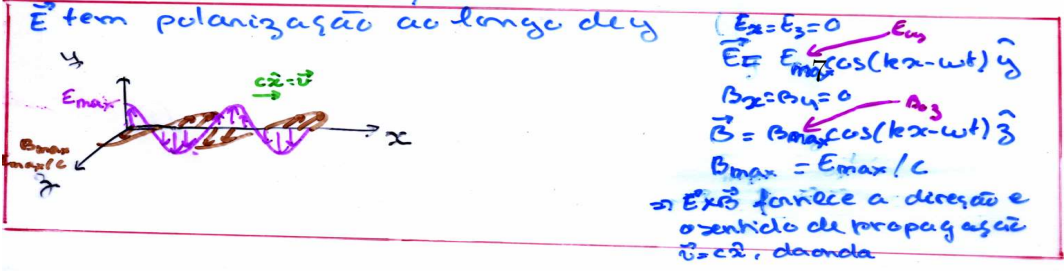 E⃗ tem polarização ao longo de y
y
E max
cx̂ = v⃗
x
Bmax
Emax/c
z
Ex=Ez=0
Eoy
E⃗ = Emax cos(kx-wt) ŷ
Bx=By=0
Boz
B⃗ = Bmax cos(kx-wt) ẑ
Bmax = Emax/c
⇒ E⃗xB⃗ fornece a direção e
o sentido de propagação
v⃗=cx̂, da onda